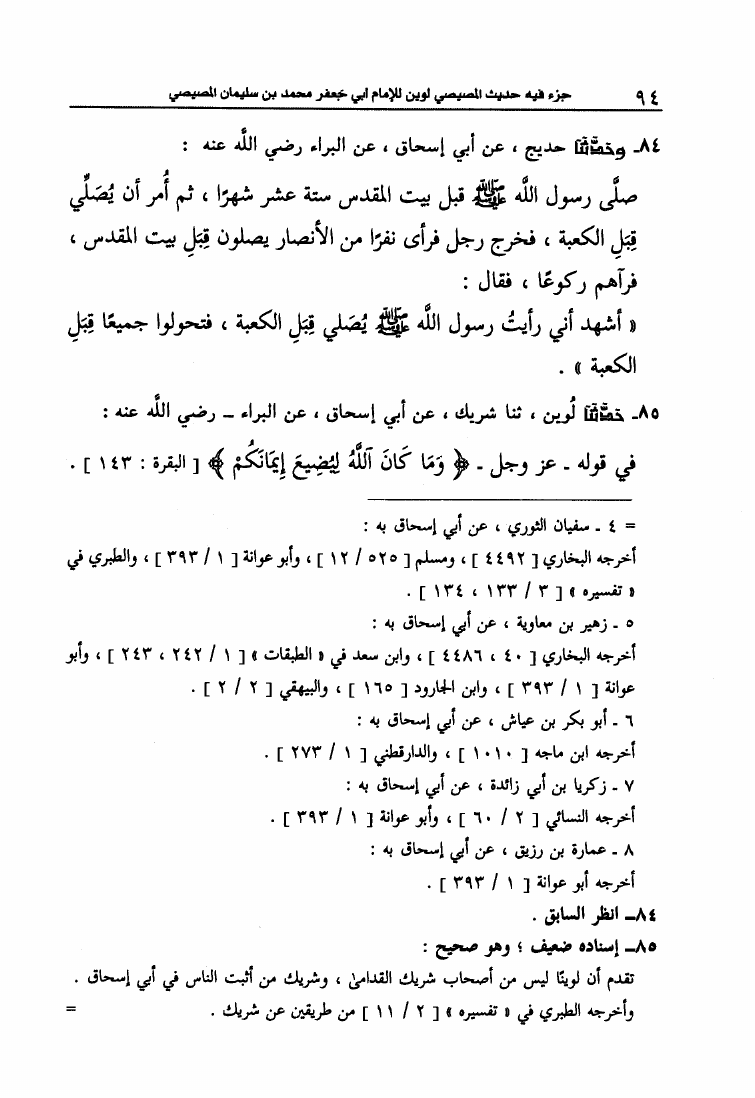 ٩٤ جزء فيه حديث المصيصي لوين للإمام أبي جعفر محمد بن سليمان المصيصي
٨٤ـ وحَدَّثَنَا حديج ، عن أبي إسحاق ، عن البراء رضي اللَّه عنه :
صلَّى رسول اللَّه ﷺ قبل بيت المقدس ستة عشر شهرًا ، ثم أُمر أن يُصَلِّي
قِبَلِ الكعبة ، فخرج رجل فرأى نفرًا من الأنصار يصلون قِبَلِ بيت المقدس ،
فرآهم ركوعًا ، فقال :
« أشهد أني رأيتُ رسول اللَّه ﷺ يُصَلي قِبَلِ الكعبة ، فتحولوا جميعًا قِبَلِ
الكعبة » .
٨٥ـ حَدَّثَنَا لُوين ، ثنا شريك ، عن أبي إسحاق ، عن البراء ـ رضي اللَّه عنه :
في قوله ـ عز وجل ـ ﴿ وَمَا كَانَ ٱللَّهُ لِيُضِيعَ إِيمَانَكُمْ ﴾ [ البقرة : ١٤٣ ] .
= ٤ ـ سفيان الثوري ، عن أبي إسحاق به :
أخرجه البخاري [ ٤٤٩٢ ] ، ومسلم [ ٥٢٥ / ١٢ ] ، وأبو عوانة [ ١ / ٣٩٣ ] ، والطبري في
« تفسيره » [ ٣ / ١٣٣ ، ١٣٤ ] .
٥ ـ زهير بن معاوية ، عن أبي إسحاق به :
أخرجه البخاري [ ٤٠ ، ٤٤٨٦ ] ، وابن سعد في « الطبقات » [ ١ / ٢٤٢ ، ٢٤٣ ] ، وأبو
عوانة [ ١ / ٣٩٣ ] ، وابن الجارود [ ١٦٥ ] ، والبيهقي [ ٢ / ٢ ] .
٦ ـ أبو بكر بن عياش ، عن أبي إسحاق به :
أخرجه ابن ماجه [ ١٠١٠ ] ، والدارقطني [ ١ / ٢٧٣ ] .
٧ ـ زكريا بن أبي زائدة ، عن أبي إسحاق به :
أخرجه النسائي [ ٢ / ٦٠ ] ، وأبو عوانة [ ١ / ٣٩٣ ] .
٨ ـ عمارة بن رزيق ، عن أبي إسحاق به :
أخرجه أبو عوانة [ ١ / ٣٩٣ ] .
٨٤ـ انظر السابق .
٨٥ـ إسناده ضعيف ؛ وهو صحيح :
تقدم أن لوينًا ليس من أصحاب شريك القدامىٰ ، وشريك من أثبت الناس في أبي إسحاق .
وأخرجه الطبري في « تفسيره » [ ٢ / ١١ ] من طريقين عن شريك . =